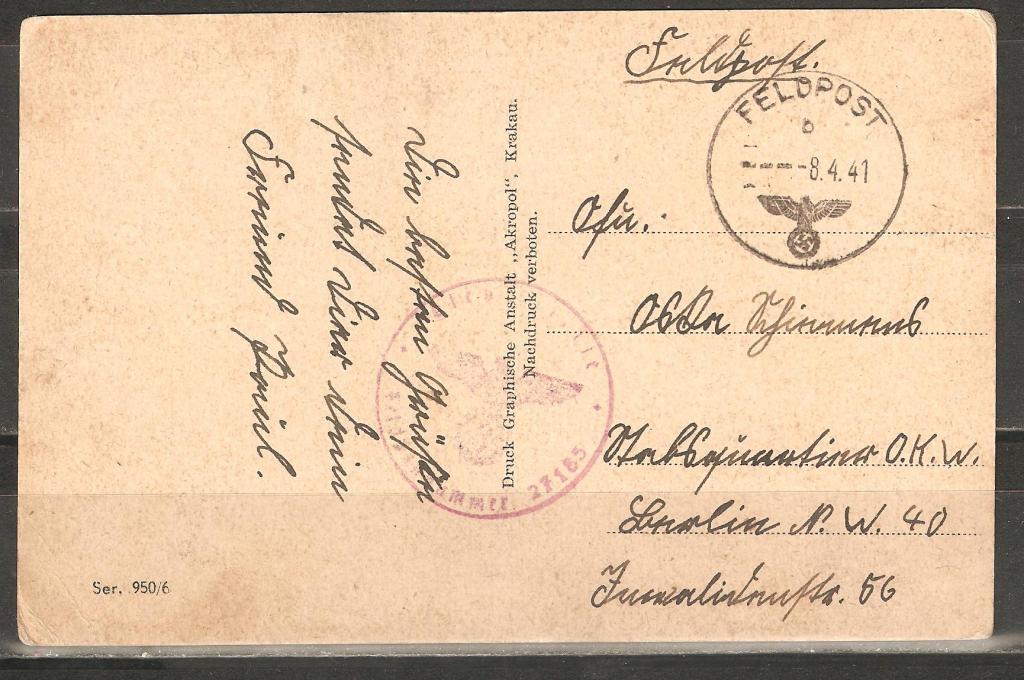 Feldpost.
FELDPOST
b
-8.4.41
Die besten Grüßen
sendet Dir dein
Freund Paul.
Druck Graphische Anstalt „Akropol“, Krakau.
Nachdruck verboten.
27165
Schirmans
Stabsquartier O.K.W.
Berlin N.W. 40
Invalidenstr. 56
Ser. 950/6